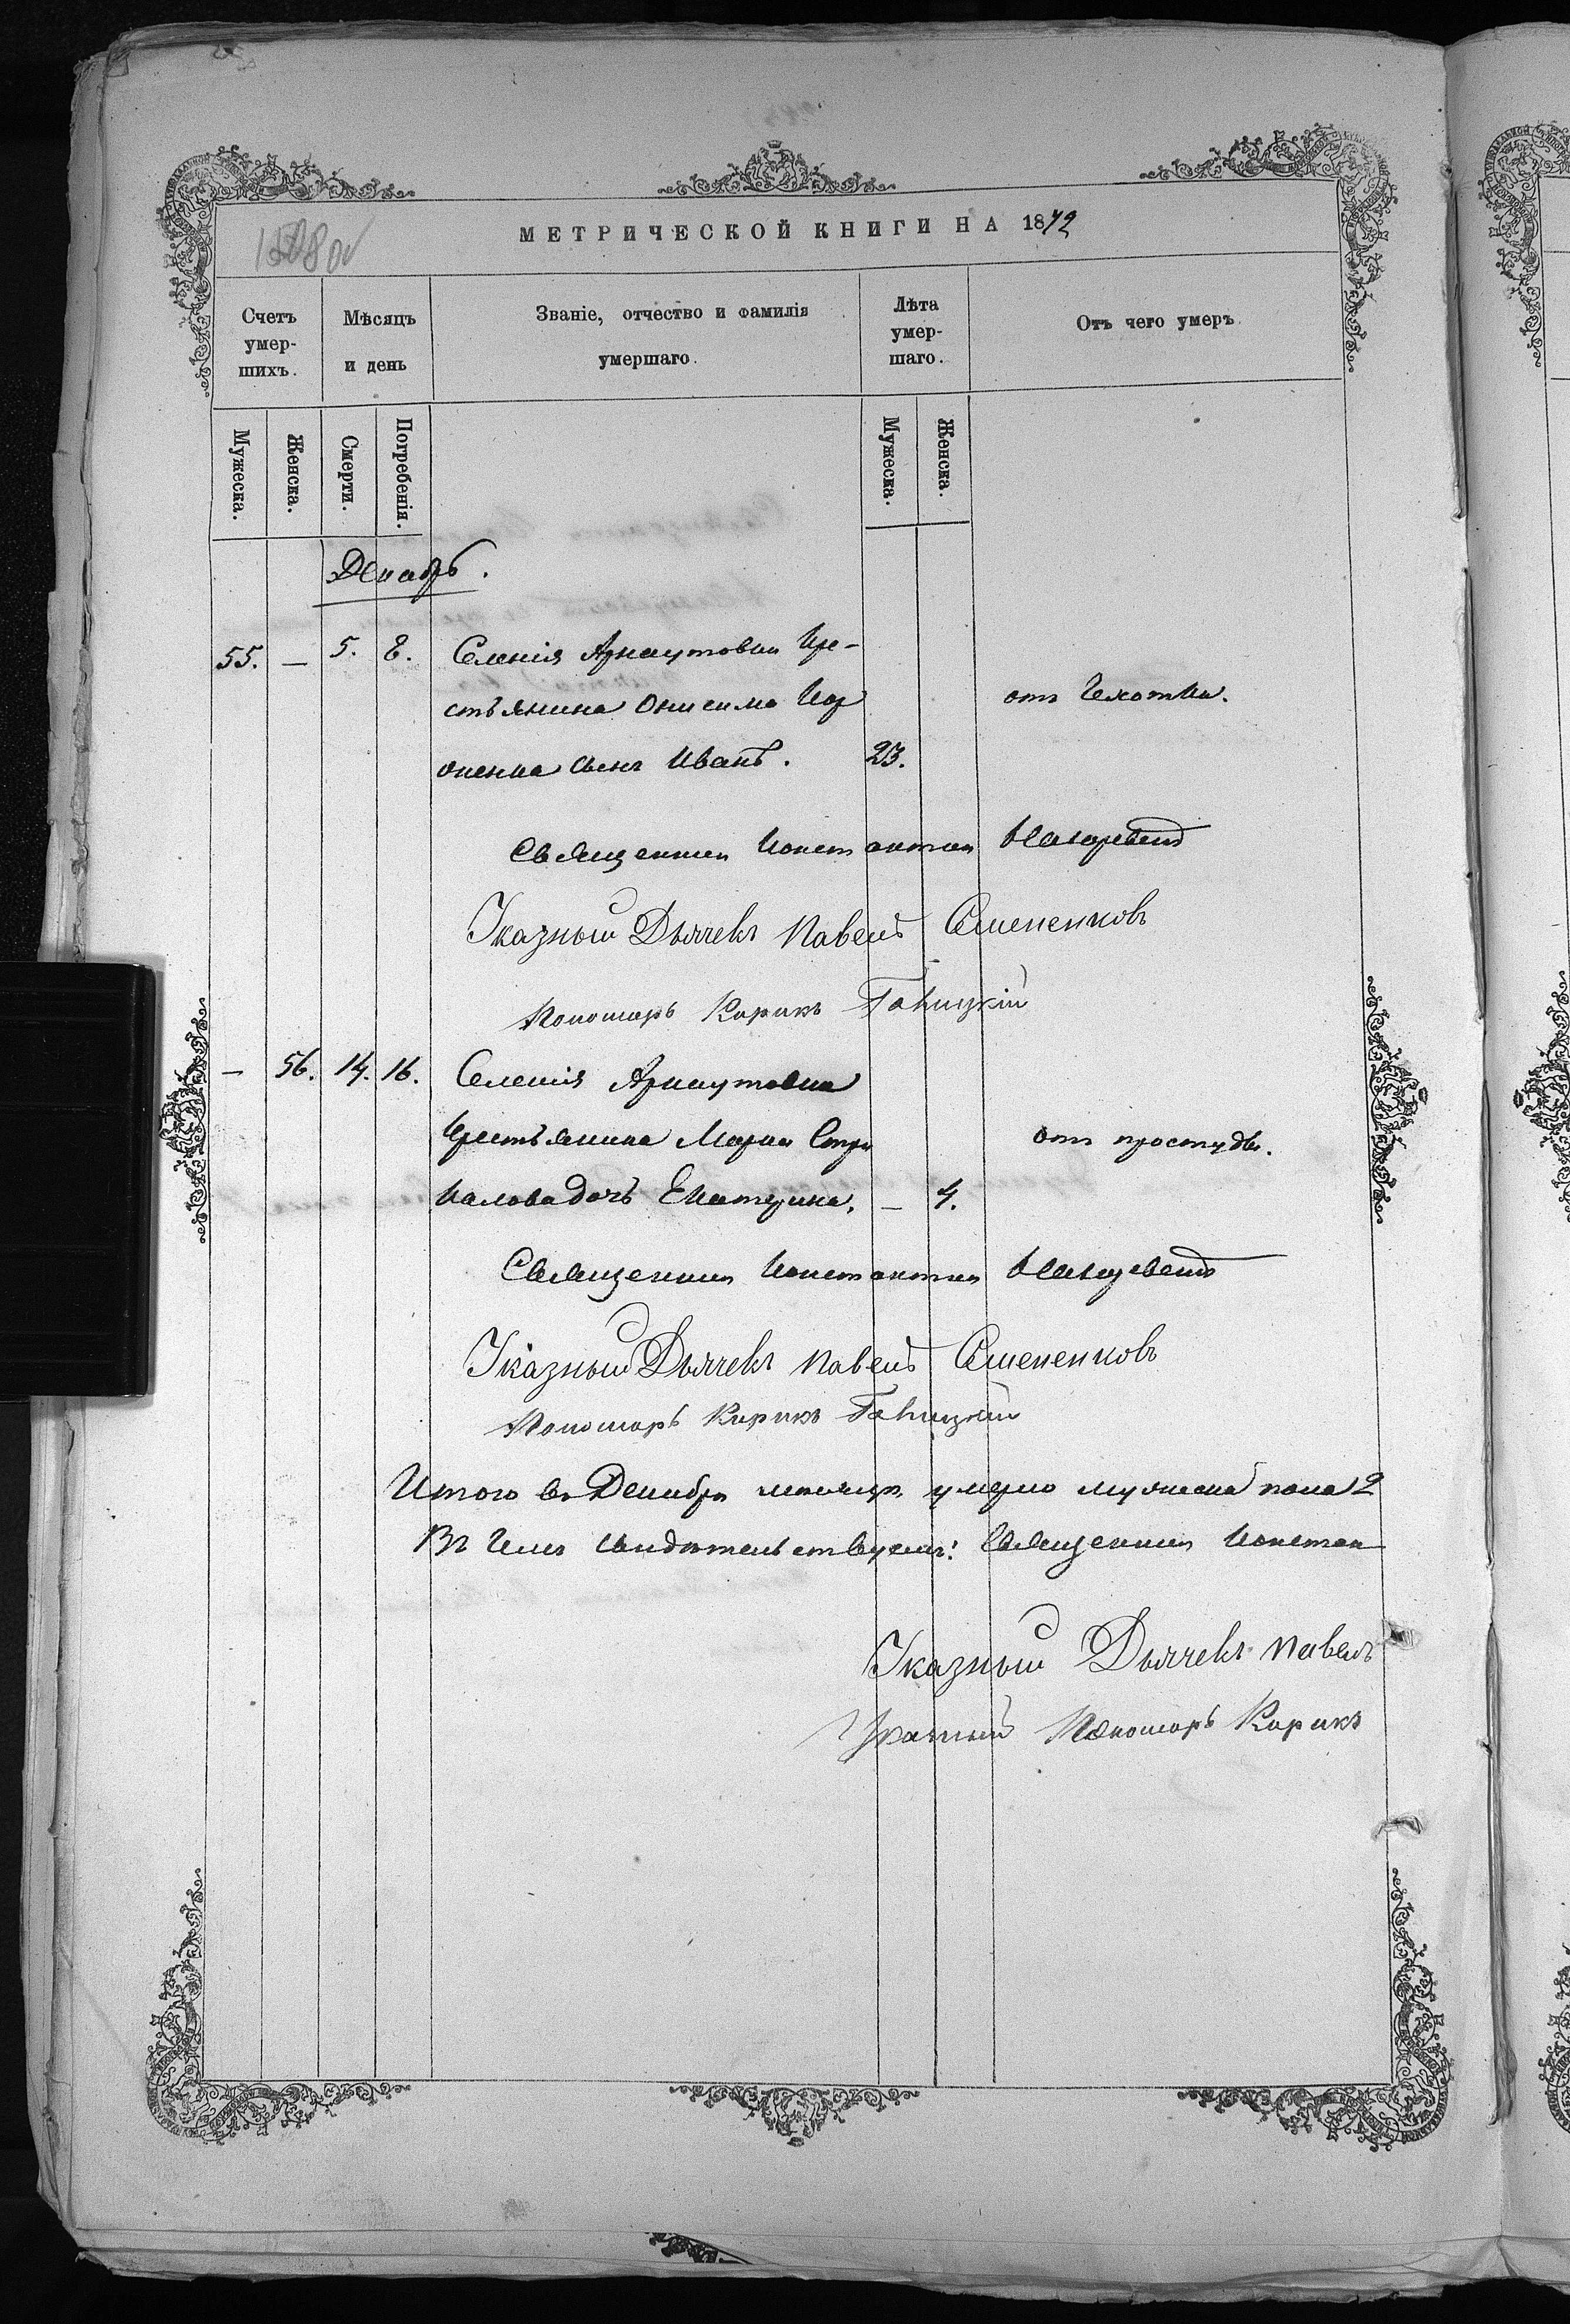 МЕТРИЧЕСКОЙ КНИГИ НА 1872
Счетъ умер-шихъ.
Мѣсяцъ и день
Званіе, отчество и фамилія умершаго.
Лѣта умер-шаго.
Отъ чего умеръ
Мужеска.
Женска.
Смерти.
Погребенія.
Мужеска.
Женска.
Декабрь.
55. — 5. 8. Селенія Арнаутовки Кре-
стьянина Онисима Кор
от чахотки.
оненка сынъ Иванъ. 23.
Священникъ Констактин
Указный Дьячекъ Павелъ Семененковъ
Пономарь Кирикъ
— 56. 14. 16. Селенія Арнаутовки
Крестьянина Марка Стри
от простуды.
калова дочь Екатерина. — 4.
Священникъ Констактин
Указный Дьячекъ Павелъ Семененковъ
Пономарь Кирикъ
Итого въ Декабрѣ мѣсяцѣ умерло мужеска пола 2
Въ чемъ свидѣтельствуемъ: Священникъ Констан
Указный Дьячекъ Павелъ
Указный Пономарь Кирикъ